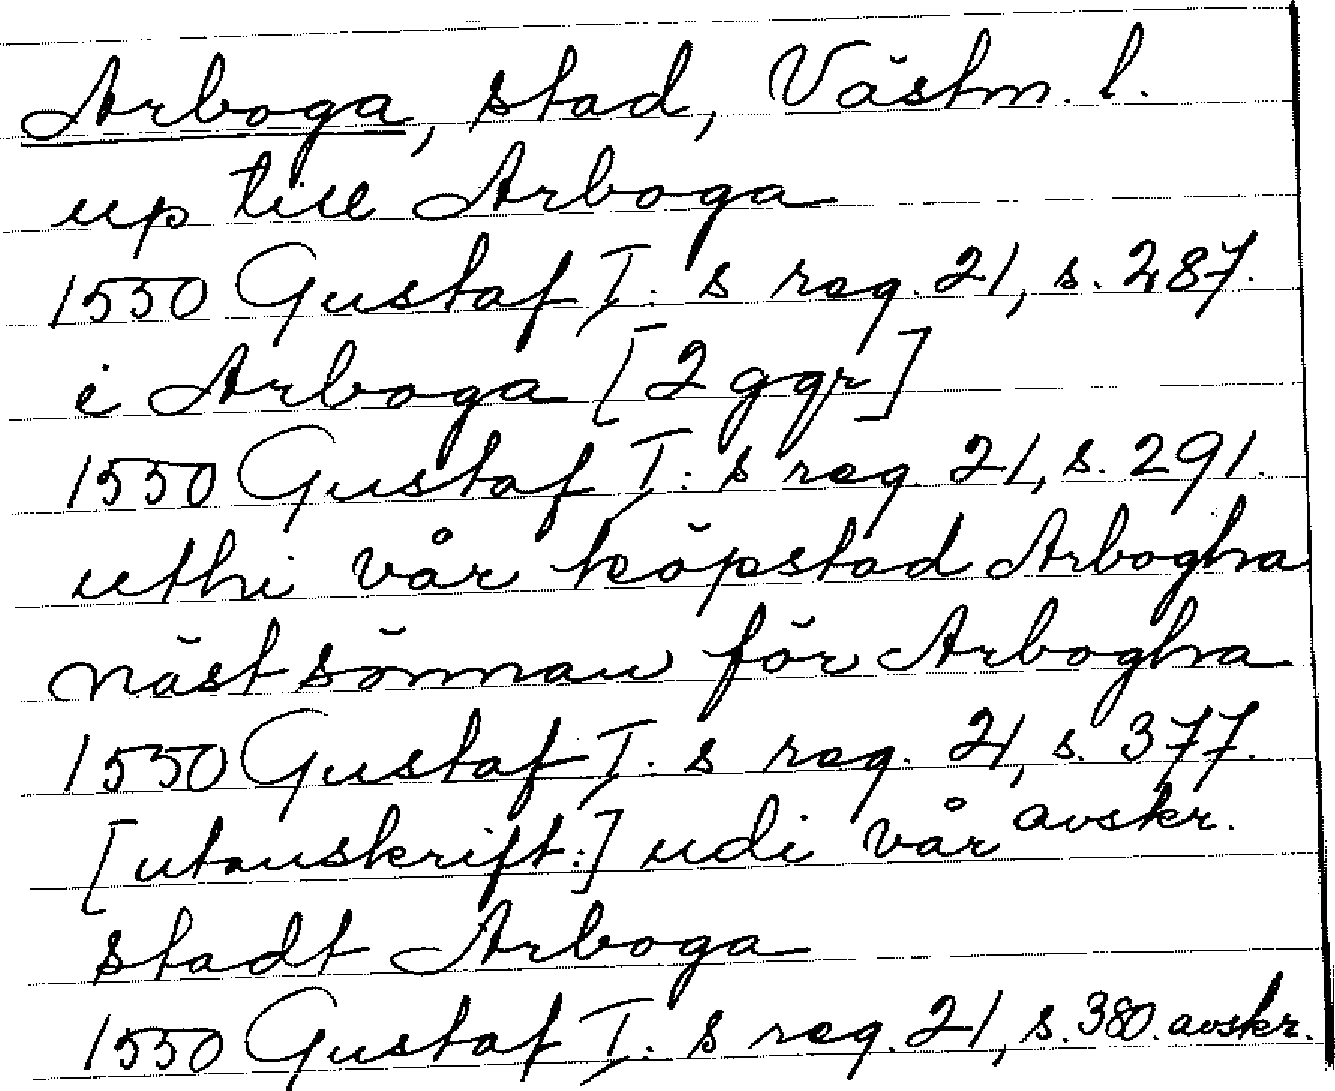 Arboga, stad, Västm. l.
up till Arboga
1550 Gustaf I:s reg. 21, s. 287.
i Arboga [2 ggr]
1550 Gustaf I:s reg 21, s. 291.
uthi vår köpstad Arbogha
näst sönnan för Arbogha
1550 Gustaf I:s reg. 21, s. 377.
avskr.
[utanskrift:] udi vår
stadt Arboga
1550 Gustaf I:s reg. 21, s. 380. avskr.